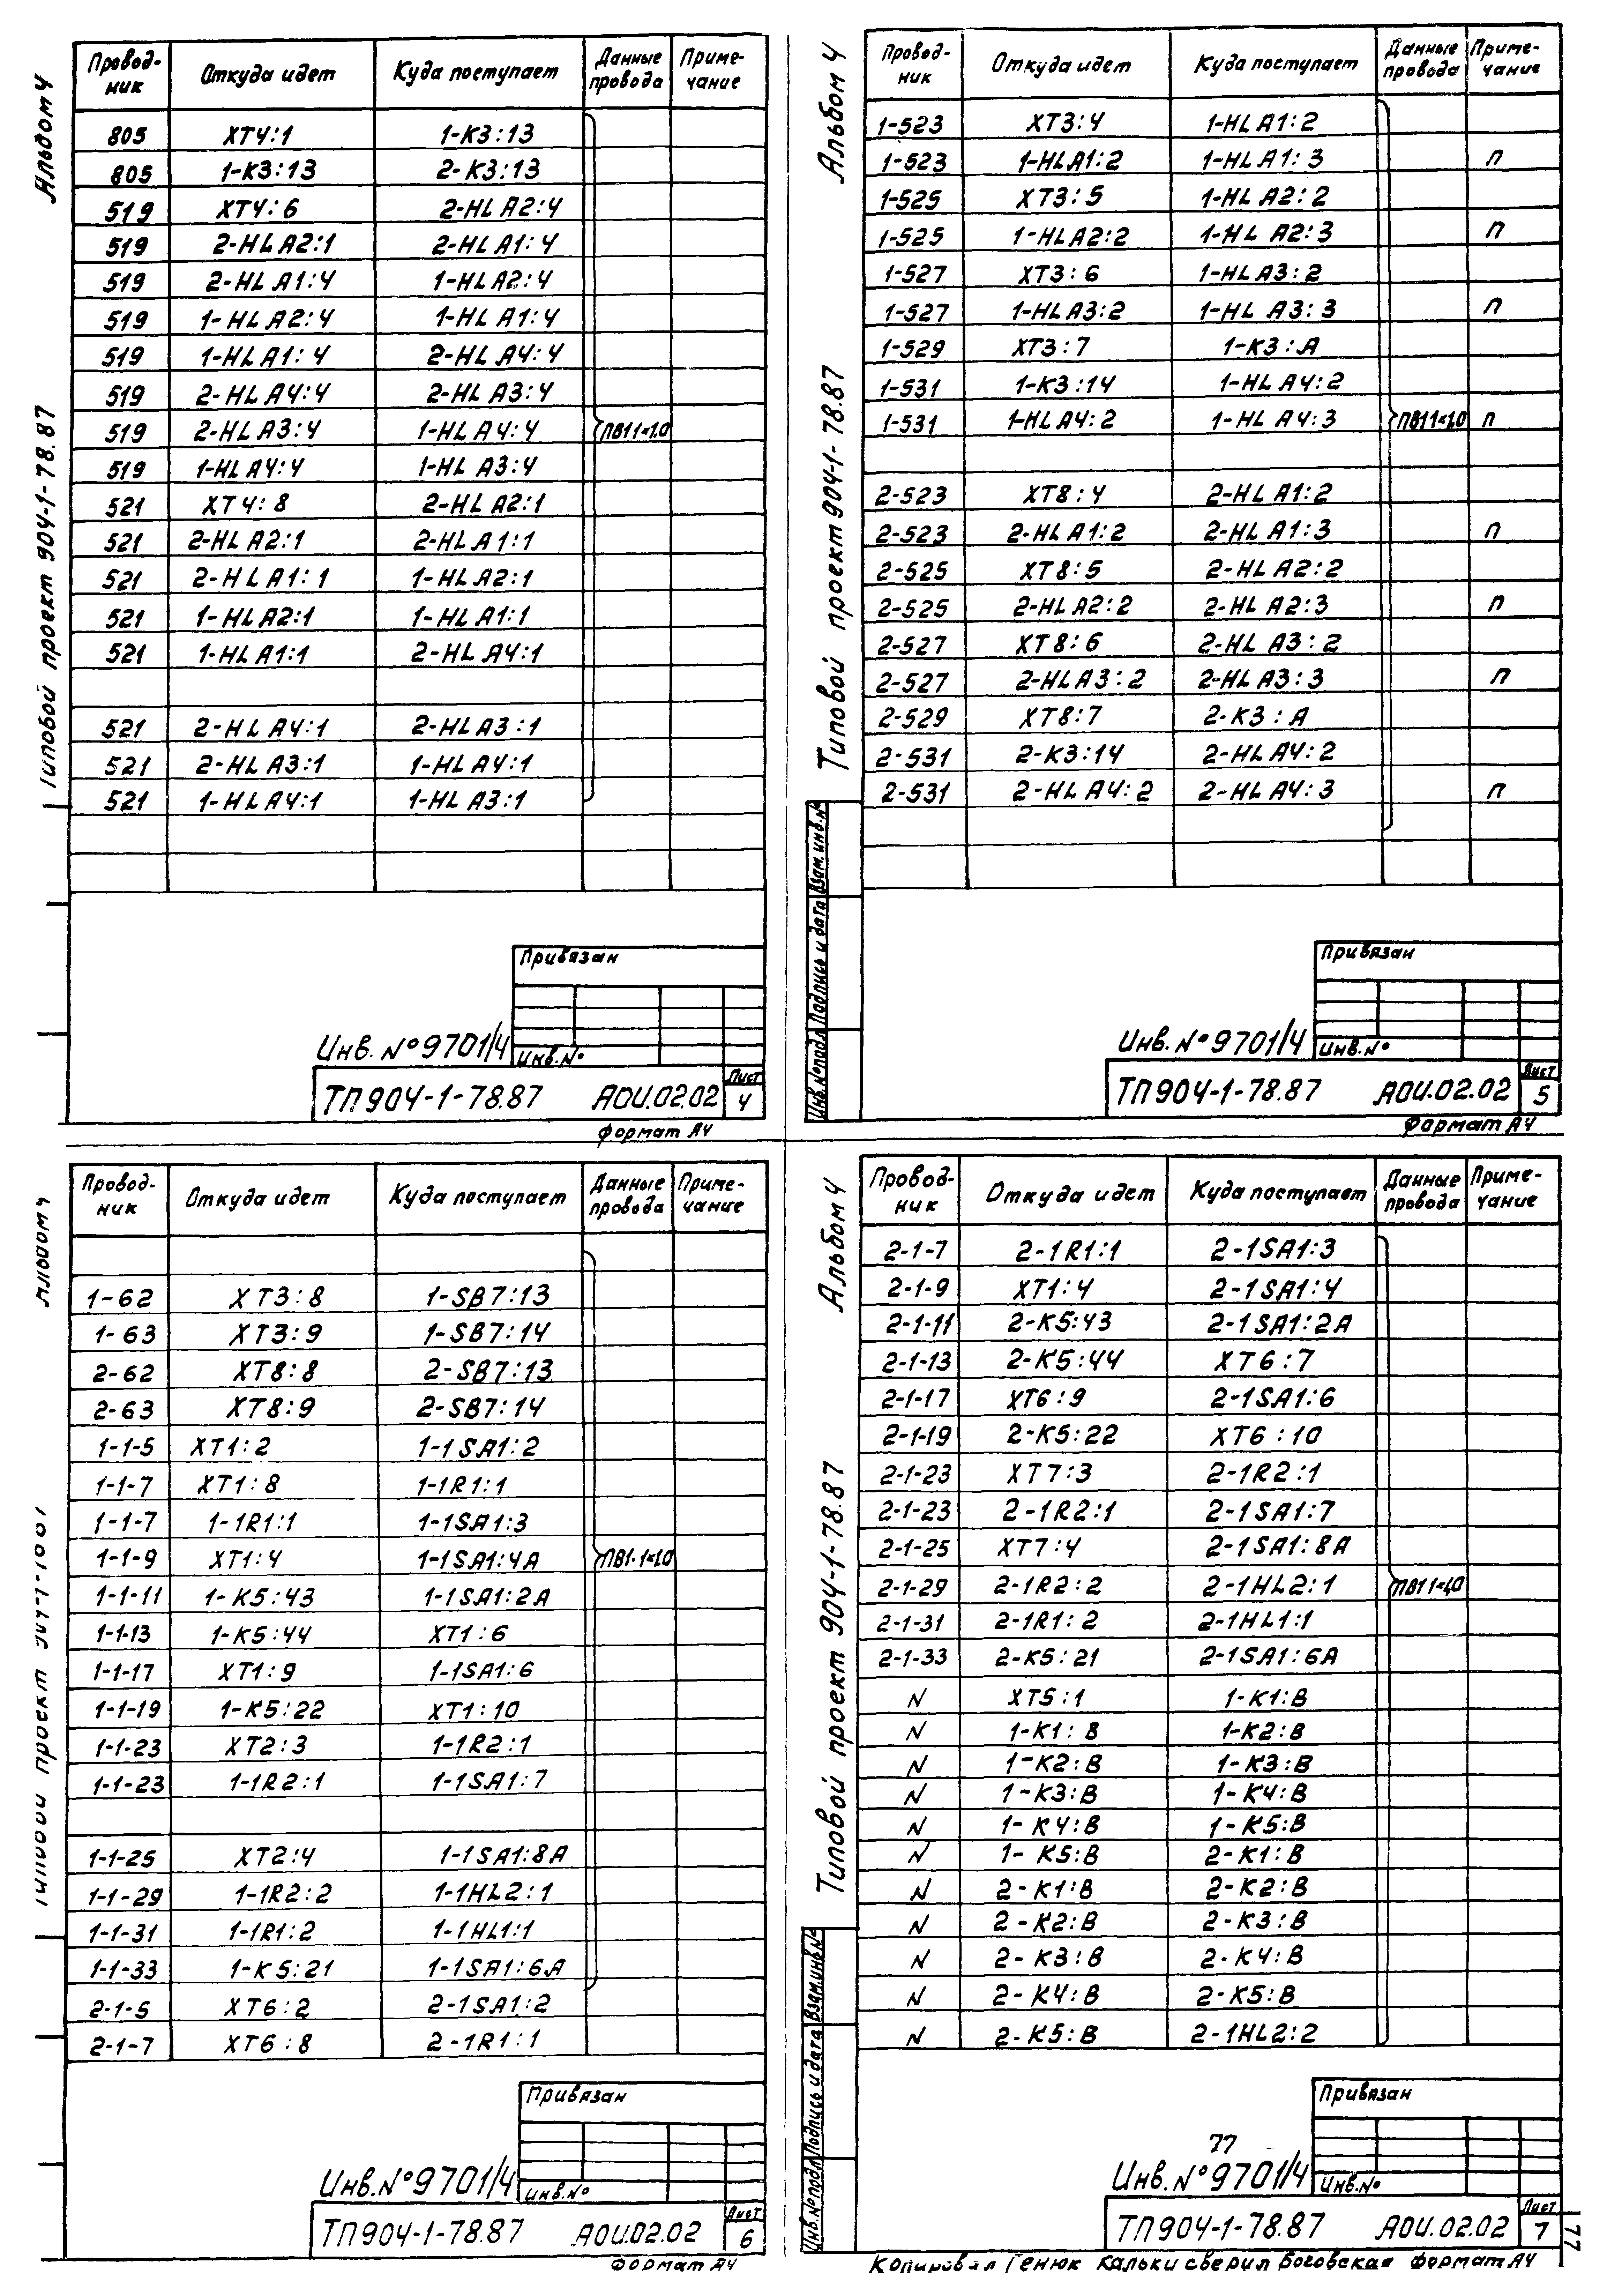 Альбом 4
Типовой проект 904-1-78.87
Провод-ник Откуда идет Куда поступает Данные провода Приме-чание
805 XT4:1 1-K3:13
805 1-K3:13 2-K3:13
519 XT4:6 2-HLA2:4
519 2-HLA2:1 2-HLA1:4
519 2-HLA1:4 1-HLA2:4
519 1-HLA2:4 1-HLA1:4
519 1-HLA1:4 2-HLA4:4
519 2-HLA4:4 2-HLA3:4
519 2-HLA3:4 1-HLA4:4 ПВ1 1×1.0
519 1-HLA4:4 1-HLA3:4
521 XT4:8 2-HLA2:1
521 2-HLA2:1 2-HLA1:1
521 2-HLA1:1 1-HLA2:1
521 1-HLA2:1 1-HLA1:1
521 1-HLA1:1 2-HLA4:1
521 2-HLA4:1 2-HLA3:1
521 2-HLA3:1 1-HLA4:1
521 1-HLA4:1 1-HLA3:1
Привязан
Инв. №9701/4 Инв.№
ТП904-1-78.87 АОИ.02.02 Лист 4
Формат А4
Альбом 4
Типовой проект 904-1-78.87
Провод-ник Откуда идет Куда поступает Данные провода Приме-чание
1-523 XT3:4 1-HLA1:2
1-523 1-HLA1:2 1-HLA1:3 п
1-525 XT3:5 1-HLA2:2
1-525 1-HLA2:2 1-HLA2:3 п
1-527 XT3:6 1-HLA3:2
1-527 1-HLA3:2 1-HLA3:3 п
1-529 XT3:7 1-K3:A
1-531 1-K3:14 1-HLA4:2
1-531 1-HLA4:2 1-HLA4:3 ПВ1 1×1.0 п
2-523 XT8:4 2-HLA1:2
2-523 2-HLA1:2 2-HLA1:3 п
2-525 XT8:5 2-HLA2:2
2-525 2-HLA2:2 2-HLA2:3 п
2-527 XT8:6 2-HLA3:2
2-527 2-HLA3:2 2-HLA3:3 п
2-529 XT8:7 2-K3:A
2-531 2-K3:14 2-HLA4:2
2-531 2-HLA4:2 2-HLA4:3 п
Инв.№подл. Подпись и дата Взам.инв.№
Привязан
Инв. №9701/4 Инв.№
ТП904-1-78.87 АОИ.02.02 Лист 5
Формат А4
Альбом 4
Типовой проект
Провод-ник Откуда идет Куда поступает Данные провода Приме-чание
1-62 XT3:8 1-SB7:13
1-63 XT3:9 1-SB7:14
2-62 XT8:8 2-SB7:13
2-63 XT8:9 2-SB7:14
1-1-5 XT1:2 1-1SA1:2
1-1-7 XT1:8 1-1R1:1
1-1-7 1-1R1:1 1-1SA1:3
1-1-9 XT1:4 1-1SA1:4A ПВ1.1×1.0
1-1-11 1-K5:43 1-1SA1:2A
1-1-13 1-K5:44 XT1:6
1-1-17 XT1:9 1-1SA1:6
1-1-19 1-K5:22 XT1:10
1-1-23 XT2:3 1-1R2:1
1-1-23 1-1R2:1 1-1SA1:7
1-1-25 XT2:4 1-1SA1:8A
1-1-29 1-1R2:2 1-1HL2:1
1-1-31 1-1R1:2 1-1HL1:1
1-1-33 1-K5:21 1-1SA1:6A
2-1-5 XT6:2 2-1SA1:2
2-1-7 XT6:8 2-1R1:1
Привязан
Инв.№9701/4 Инв.№
ТП904-1-78.87 АОИ.02.02 Лист 6
Формат А4
Альбом 4
Типовой проект 904-1-78.87
Провод-ник Откуда идет Куда поступает Данные провода Приме-чание
2-1-7 2-1R1:1 2-1SA1:3
2-1-9 XT1:4 2-1SA1:4
2-1-11 2-K5:43 2-1SA1:2A
2-1-13 2-K5:44 XT6:7
2-1-17 XT6:9 2-1SA1:6
2-1-19 2-K5:22 XT6:10
2-1-23 XT7:3 2-1R2:1
2-1-23 2-1R2:1 2-1SA1:7
2-1-25 XT7:4 2-1SA1:8A
2-1-29 2-1R2:2 2-1HL2:1 ПВ1 1×1,0
2-1-31 2-1R1:2 2-1HL1:1
2-1-33 2-K5:21 2-1SA1:6A
N XT5:1 1-K1:B
N 1-K1:B 1-K2:B
N 1-K2:B 1-K3:B
N 1-K3:B 1-K4:B
N 1-K4:B 1-K5:B
N 1-K5:B 2-K1:B
N 2-K1:B 2-K2:B
N 2-K2:B 2-K3:B
N 2-K3:B 2-K4:B
N 2-K4:B 2-K5:B
N 2-K5:B 2-1HL2:2
Инв.№подл. Подпись и дата Взам.инв.№
Привязан
77
Инв.№9701/4 Инв.№
ТП904-1-78.87 АОИ.02.02 Лист 7
77
Копировал Генюк Кальки сверил Боговская формат А4